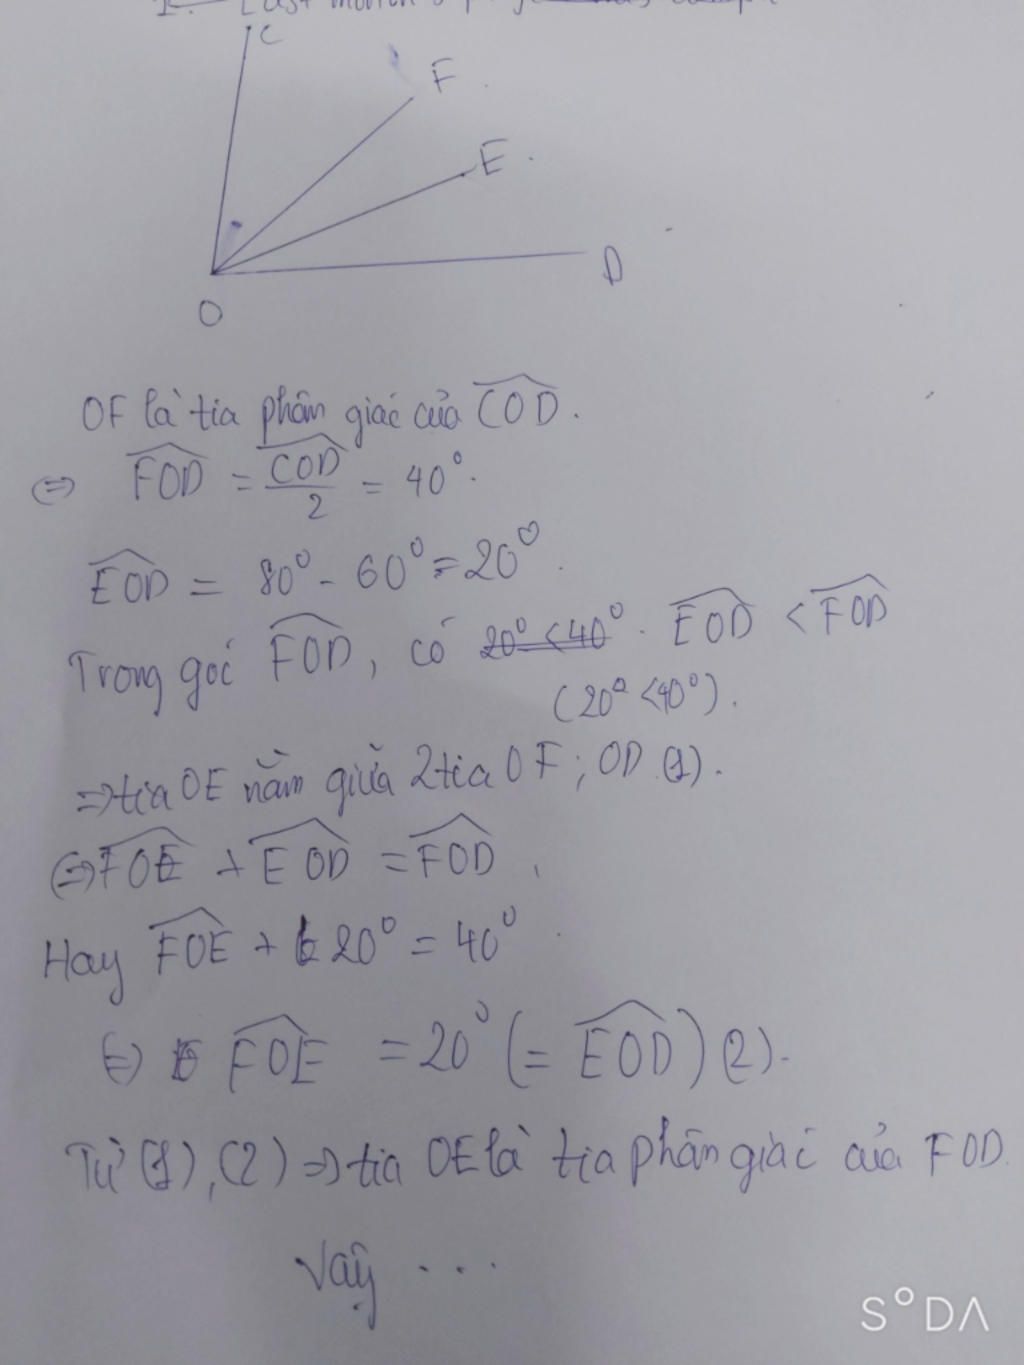 C
F
E
D
O
OF là tia phân giác của COD.
⇔ FOD = COD/2 = 40°.
EOD = 80° - 60° = 20°.
Trong góc FOD, có 20° < 40°. EOD < FOD
(20° < 40°).
⇒ tia OE nằm giữa 2 tia OF; OD (1).
⇔ FOE + EOD = FOD.
Hay FOE + 20° = 40°
⇔ FOE = 20° (= EOD) (2).
Từ (1), (2) ⇒ tia OE là tia phân giác của FOD.
Vậy ...
S°DA